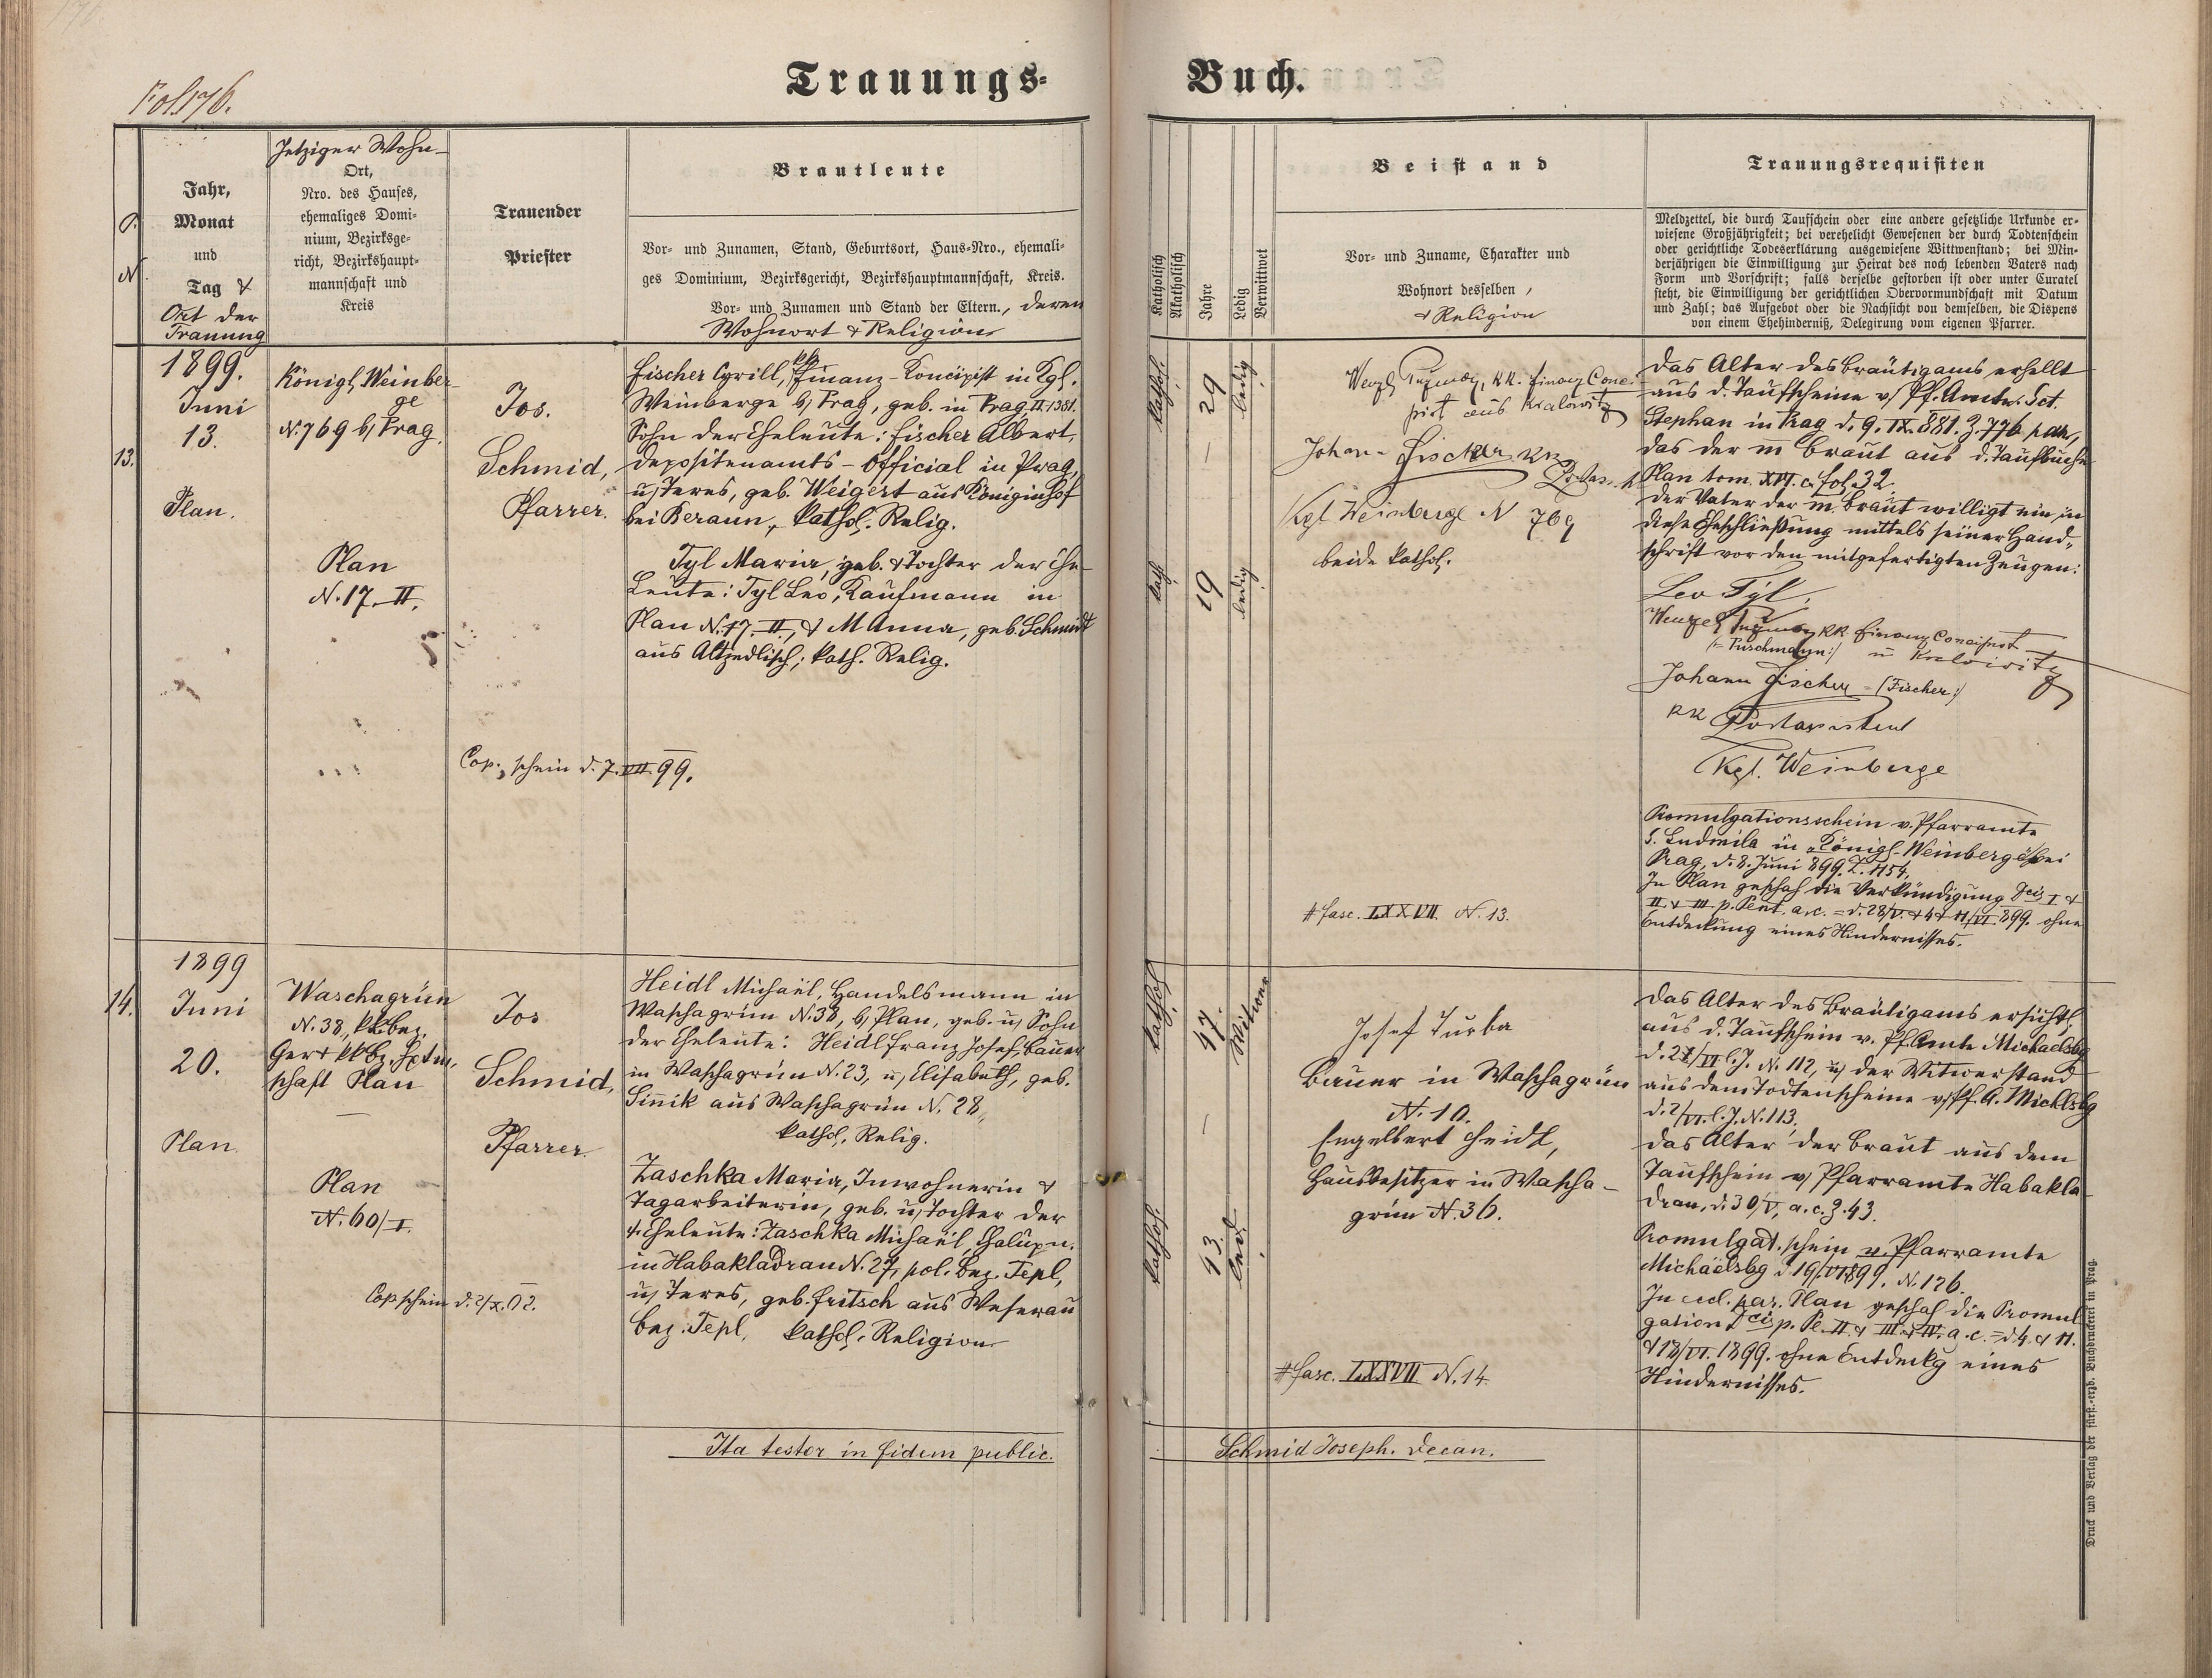 Fol. 176.
Trauungs-
Buch.
P.
N.
Jahr,
Monat
und
Tag &
Ort der
Trauung
Jetziger Wohn-
Ort,
Nro. des Hauses,
ehemaliges Domi-
nium, Bezirksge-
richt, Bezirkshaupt-
mannschaft und
Kreis
Trauender
Priester
Brautleute
Vor- und Zunamen, Stand, Geburtsort, Haus-Nro., ehemali-
ges Dominium, Bezirksgericht, Bezirkshauptmannschaft, Kreis.
Vor- und Zunamen und Stand der Eltern., deren
Wohnort & Religion
Katholisch
Akatholisch
Jahre
Ledig
Verwittwet
Beistand
Vor- und Zuname, Charakter und
Wohnort desselben,
& Religion
Trauungsrequisiten
Meldzettel, die durch Taufschein oder eine andere gesetzliche Urkunde er-
wiesene Großjährigkeit; bei verehelicht Gewesenen der durch Todtenschein
oder gerichtliche Todeserklärung ausgewiesene Wittwenstand; bei Min-
derjährigen die Einwilligung zur Heirat des noch lebenden Vaters nach
Form und Vorschrift; falls derselbe gestorben ist oder unter Curatel
steht, die Einwilligung der gerichtlichen Obervormundschaft mit Datum
und Zahl; das Aufgebot oder die Nachsicht von demselben, die Dispens
von einem Ehehinderniß, Delegirung vom eigenen Pfarrer.
13.
1899.
Juni
13.
Plan.
Königl. Weinber-
ge
N. 769 b/ Prag.
Plan
N. 17. II.
Jos.
Schmid,
Pfarrer.
Fischer Cyrill, kk Finanz-Koncipist in Kgl.
Weinberge b/ Prag, geb. in Prag, II-1381.
Sohn der Eheleute: Fischer Albert,
Depositenamts-Official in Prag,
u/ Teres, geb. Weigert aus Königinhof
bei Beraun, kathol. Relig.
Tyl Maria, geb. & Tochter der Ehe-
Leute: Tyl Leo, Kaufmann in
Plan N. 17. II., & M Anna, geb. Schmidt
aus Altzedlisch; kath. Relig.
Cop. schein d. 7. VII. 99.
kathol.
29
ledig
kath.
19
ledig
Wenzl kk. Finanz Conci-
pist aus Kralowitz
Johann Fischer kk
Kgl Weinberge N 769
beide kathol.
# fasc. LXXVII. N. 13.
Das Alter des Bräutigams erhellt
aus d. Taufscheine v/ Pf. Amte Sct.
Stephan in Prag d. 9. IX. 881. Z. 776 par,
das der m Braut aus d. Taufbuche
Plan tom. XVI. c. fol. 32.
Der Vater der m. Braut willigt ein in
diese Eheschließung mittels seiner Hand-
schrift vor den mitgefertigten Zeugen:
Leo Tyl.
Wenzel kk Finanz Concipist
/: Puschmann :/ in Kralowitz
Johann Fischer = (Fischer :/
kk Postassistent
Kgl. Weinberge
Promulgationsschein v. Pfarramte
S. Ludmila in Königl. Weinberge bei
Prag, d. 8. Juni 899. Z. 1154.
In Plan geschah die Verkündigung Dcis I &
II & III p. Pent. a. c. = d. 28/V. & 4 & 11/VI 899. ohne
Entdeckung eines Hindernisses.
14.
1899
Juni
20.
Plan
Waschagrün
N. 38, kk. Bez.
Ger & kk Bz. Hptm.
schaft Plan
Plan
N. 60/I.
Jos
Schmid,
Pfarrer
Heidl Michaël, Handelsmann in
Waschagrün N. 38, b/ Plan, geb. u/ Sohn
der Eheleute: Heidl Franz Josef, Bauer
in Waschagrün N. 23, u/ Elisabeth, geb.
aus Waschagrün N. 28,
kathol. Relig.
Zaschka Maria, Inwohnerin &
Tagarbeiterin, geb. u/ Tochter der
Eheleute: Zaschka Michaël, Chalupn.
in Habakladrau N. 27, pol. Bez. Tepl,
u/ Teres, geb. Fritsch aus Weserau
Bez. Tepl, kathol. Religion
Cop schein d. 2/X. 02.
kathol.
47.
Witwer
kathol.
43.
led.
Josef Turba
Bauer in Waschagrün
N. 10.
Engelbert Heidl,
Hausbesitzer in Wascha-
grün N. 36.
# fasc. LXXVII N. 14
Das Alter des Bräutigams ersichtl.
aus d. Taufschein v. Pf. Amte Michaelsbg
d. 21/VI l. J. N. 112, u/ der Witwerstand
aus dem Todtenscheine v/ Pf. A. Michlsbg
d. 2/VI. l. J. N. 113.
Das Alter der Braut aus dem
Taufschein v/ Pfarramte Habakla-
drau, d. 30/V, a. c. Z. 43.
Promulgat. schein v. Pfarramte
Michaëlsbg d. 19/VI 899. N. 126.
In eccl. par. Plan geschah die Promul-
gation Dcis p. Pe. II & III & IV. a. c. = d. 4. & 11.
& 18/VI. 1899. ohne Entdeckg eines
Hindernisses.
Ita testor in fidem public.
Schmid Joseph. Decan.
Druck und Verlag der fürst.-erzb. Buchdruckerei in Prag.